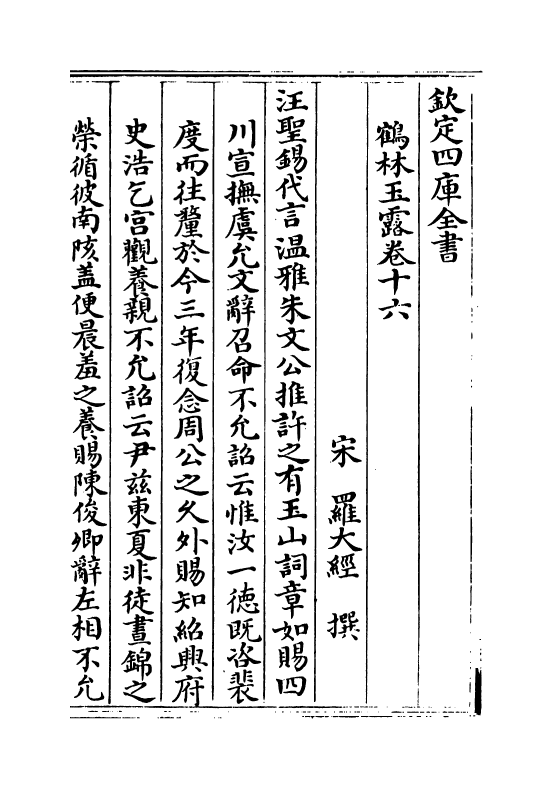 欽定四庫全書
鶴林玉露卷十六
宋 羅大經 撰
汪聖錫代言温雅朱文公推許之有玉山詞章如賜四
川宣撫虞允文辭召命不允詔云惟汝一德既咨裴
度而往釐於今三年復念周公之久外賜知紹興府
史浩乞宫觀養親不允詔云尹兹東夏非徒晝錦之
榮循彼南陔盖便晨羞之養賜陳俊卿辭左相不允